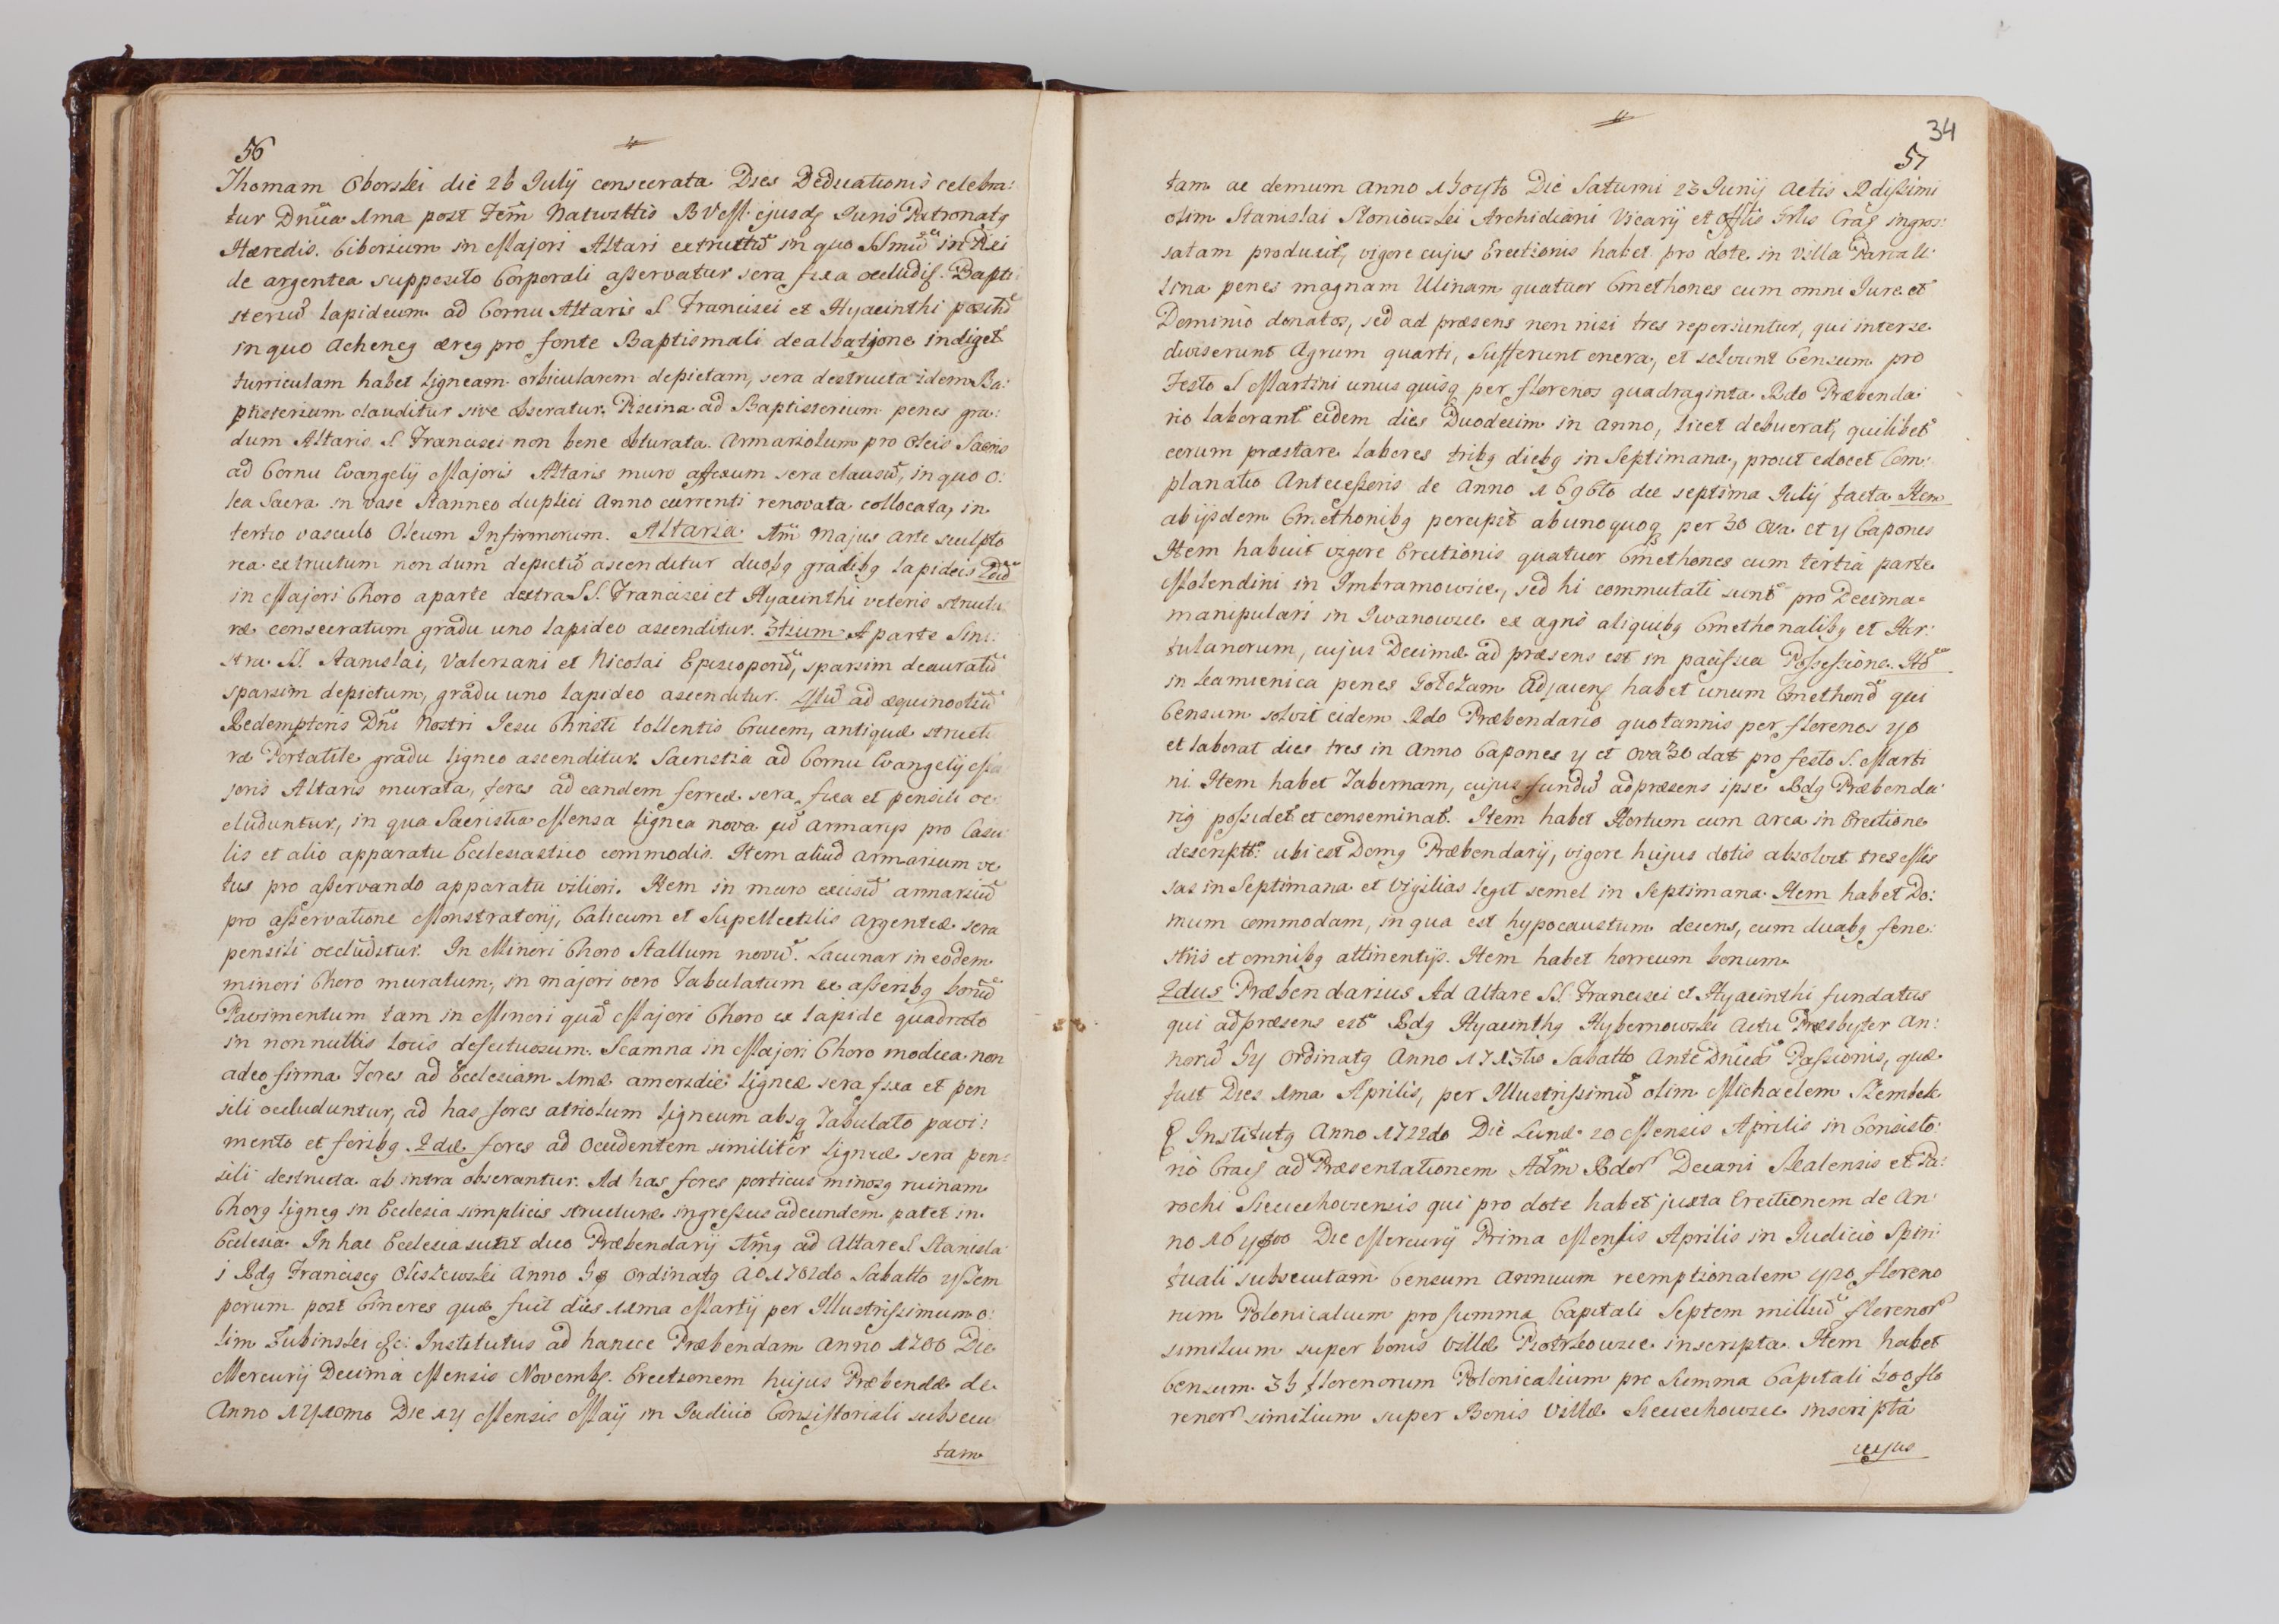 56
Thomam Oborski die 26 Julij consecrata Dies Dedicationis celebra:
tur Dnica 1ma post Fem Nativittis BVM. ejusdꝫ Juris Patronatg
Hæredis. Ciborium in Majori Altari extructũ in quo SSmũ in Pixi
de argentea supposito Corporali asservatur sera fixa occludiꝭ. Bapti
steriũ lapideum ad Cornu Altaris S. Francisci et Hyacinthi positũ
in quo Acheneg æreg pro fonte Baptismali dealbatione indiget
turriculam habet ligneam orbicularem depictam, sera destructa idem Ba:
ptisterium clauditur sive obseratur. Piscina ad Baptisterium penes gra:
dum Altaris S Francisci non bene obturata. Armariolum pro Oleis Sacris
ad Cornu Evangelij Majoris Altaris muro affixum sera clausũ, in quo O:
lea Sacra in vase stanneo duplici Anno currenti renovata collocata, in
tertio vasculo Oleum Infirmorum. Altaria. Am̃ Majus arte sculpto
rea extructum non dum depictũ ascenditur duobg gradibg lapideis 2dũ
in Majori Choro a parte dextra S.S. Francisci et Hyacinthi veteris structu
ræ consecratum gradu uno lapideo ascenditur. 3tium A parte Sini:
stra SS. Stanislai, Valeriani et Nicolai Episcoporũ, sparsim deauratũ
sparsim depictum, gradu uno lapideo ascenditur. 4tũ ad æquinoctiũ
Redemptoris Dni Nostri Jesu Christi tollentis Crucem, antiquæ structu
ræ Portatile gradu ligneo ascenditur. Sacristia ad Cornu Evangelij Ma
joris Altaris murata, fores ad eandem ferreæ sera fixa et pensili oc:
cluduntur, in qua Sacristia Mensa lignea nova cũ armarijs pro Casu:
lis et alio apparatu Ecclesiastico commodis. Item aliud armarium ve
tus pro asservando apparatu viliori. Item in muro excisũ armariũ
pro asservatione Monstratorij, Calicum et Supellectilis argenteæ sera
pensili occluditur. In Minori Choro Stallum novũ. Lacunar in eodem
minori Choro muratum, in majori vero Tabulatum ex asseribg bonũ
Pavimentum tam in Minori quã Majori Choro ex lapide quadrato
in nonnullis locis defectuosum. Scamna in Majori Choro modica non
adeo firma. Fores ad Ecclesiam 1mæ a meridie ligneæ sera fixa et pen
sili occluduntur, ad has fores atriolum ligneum absqꝫ Tabulato pavi:
mento et foribg. 2dæ fores ad Occidentem similiter ligneæ sera pen:
sili destructa ab intra obserantur. Ad has fores porticus minosg ruinam
Chorg ligneg in Ecclesia simplicis structuræ ingressus ad eundem patet in
Ecclesia. In hac Ecclesia sunt duo Præbendarij Amg ad Altare S. Stanisla:
i Rdg Franciscg Oliszewski Anno 58 Ordinatg Ao 1702do Sabatto 4 Tem
porum post Cineres quæ fuit dies 11ma Martij per Illustrissimum o:
lim Łubinski &c: Institutus ad hancce Præbendam Anno 1700 Die
Mercurij Decima Mensis Novembꝭ. Erectionem hujus Præbendæ de
Anno 1410mo Die 14 Mensis Maij in Judicio Consistoriali subsecu
tam
34
57
tam ac demum Anno 1504to Die Saturni 23 Junij Actis Rdissimi
olim Stanislai Słoniowski Archidiani Vicarij et Offlis Grlis Craꝭ ingros:
satam produxit, vigore cujus Erectionis habet pro dote in Villa Parva U:
lina penes magnam Ulinam quatuor Cmethones cum omni Jure et
Dominio donatos, sed ad præsens non nisi tres reperiuntur, qui inter se
diviserunt Agrum quarti, Sufferunt onera, et solvunt Censum pro
Festo S Martini unus quisqꝫ per florenos quadraginta Rdo Præbenda
rio laborant eidem dies Duodecim in Anno, licet debuerat, quilibet
eorum præstare labores tribg diebg in Septimana, prout edocet Com:
planatio Antecessoris de Anno 1696to die septima Julij facta. Item
ab ijsdem Cmethonibg percipit ab uno quoqꝫ per 30 Ova et 4 Capones
Item habuit vigore Erectionis quatuor Cmethones cum tertia parte
Molendini in Imbramowice, sed hi commutati sunt pro Decima
manipulari in Iwanowice ex agris aliquibg Cmethonalibg et Hor:
tulanorum, cujus Decimæ ad præsens est in pacifica Possessione. Itẽ
in Kamienica penes Gołczam Adjacenꝭ habet unum Cmethonẽ qui
Censum solvit eidem Rdo Præbendario quotannis per florenos 40
et laborat dies tres in Anno Capones 4 et Ova 30 dat pro festo S. Marti
ni. Item habet Tabernam, cujus fundũ ad præsens ipse Rdg Præbenda
rig possidet et conseminat. Item habet Hortum cum area in Erectione
descriptt: ubi est Domg Præbendarij, vigore hujus dotis absolvit tres Mis
sas in Septimana et Vigilias legit semel in Septimana. Item habet Do:
mum commodam, in qua est hypocaustum decens, cum duabg fene:
stris et omnibg attinentijs. Item habet horreum bonum.
2dus Præbendarius Ad Altare SS. Francisci et Hyacinthi fundatus
qui ad præsens est Rdg Hyacinthg Hybernowski Actu Præsbyter An:
norũ 54 Ordinatg Anno 1713tio Sabatto Ante Dnicã Passionis, quæ
fuit Dies 1ma Aprilis, per Illustrissimũ olim Michaelem Szembek
& Institutg Anno 1722do Die Lunæ 20 Mensis Aprilis in Consisto:
rio Cracꝭ ad Præsentationem Adm Rdor Decani Skalensis et Pa:
rochi Sieciechoviensis qui pro dote habet juxta Erectionem de An:
no Die Mercurij Prima Mensis Aprilis in Judicio Spiri:
tuali subsecutam Censum Annuum reemptionalem 420 floreno
rum Polonicalium pro summa Capitali Septem milliũ florenor
similium super bonis Villæ Piotrkowice inscripta. Item habet
Censum 35 florenorum Polonicalium pro Summa Capitali 500 flo
renor similium super Bonis Villæ Sieciechowice inscripta
cujus